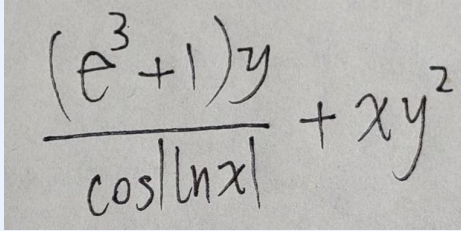 (e³+1)y
cos|lnx|
+ xy²